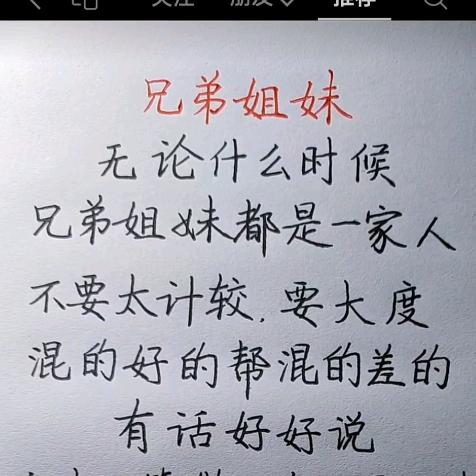 关注 朋友 推荐
兄弟姐妹
无论什么时候
兄弟姐妹都是一家人
不要太计较.要大度
混的好的帮混的差的
有话好好说